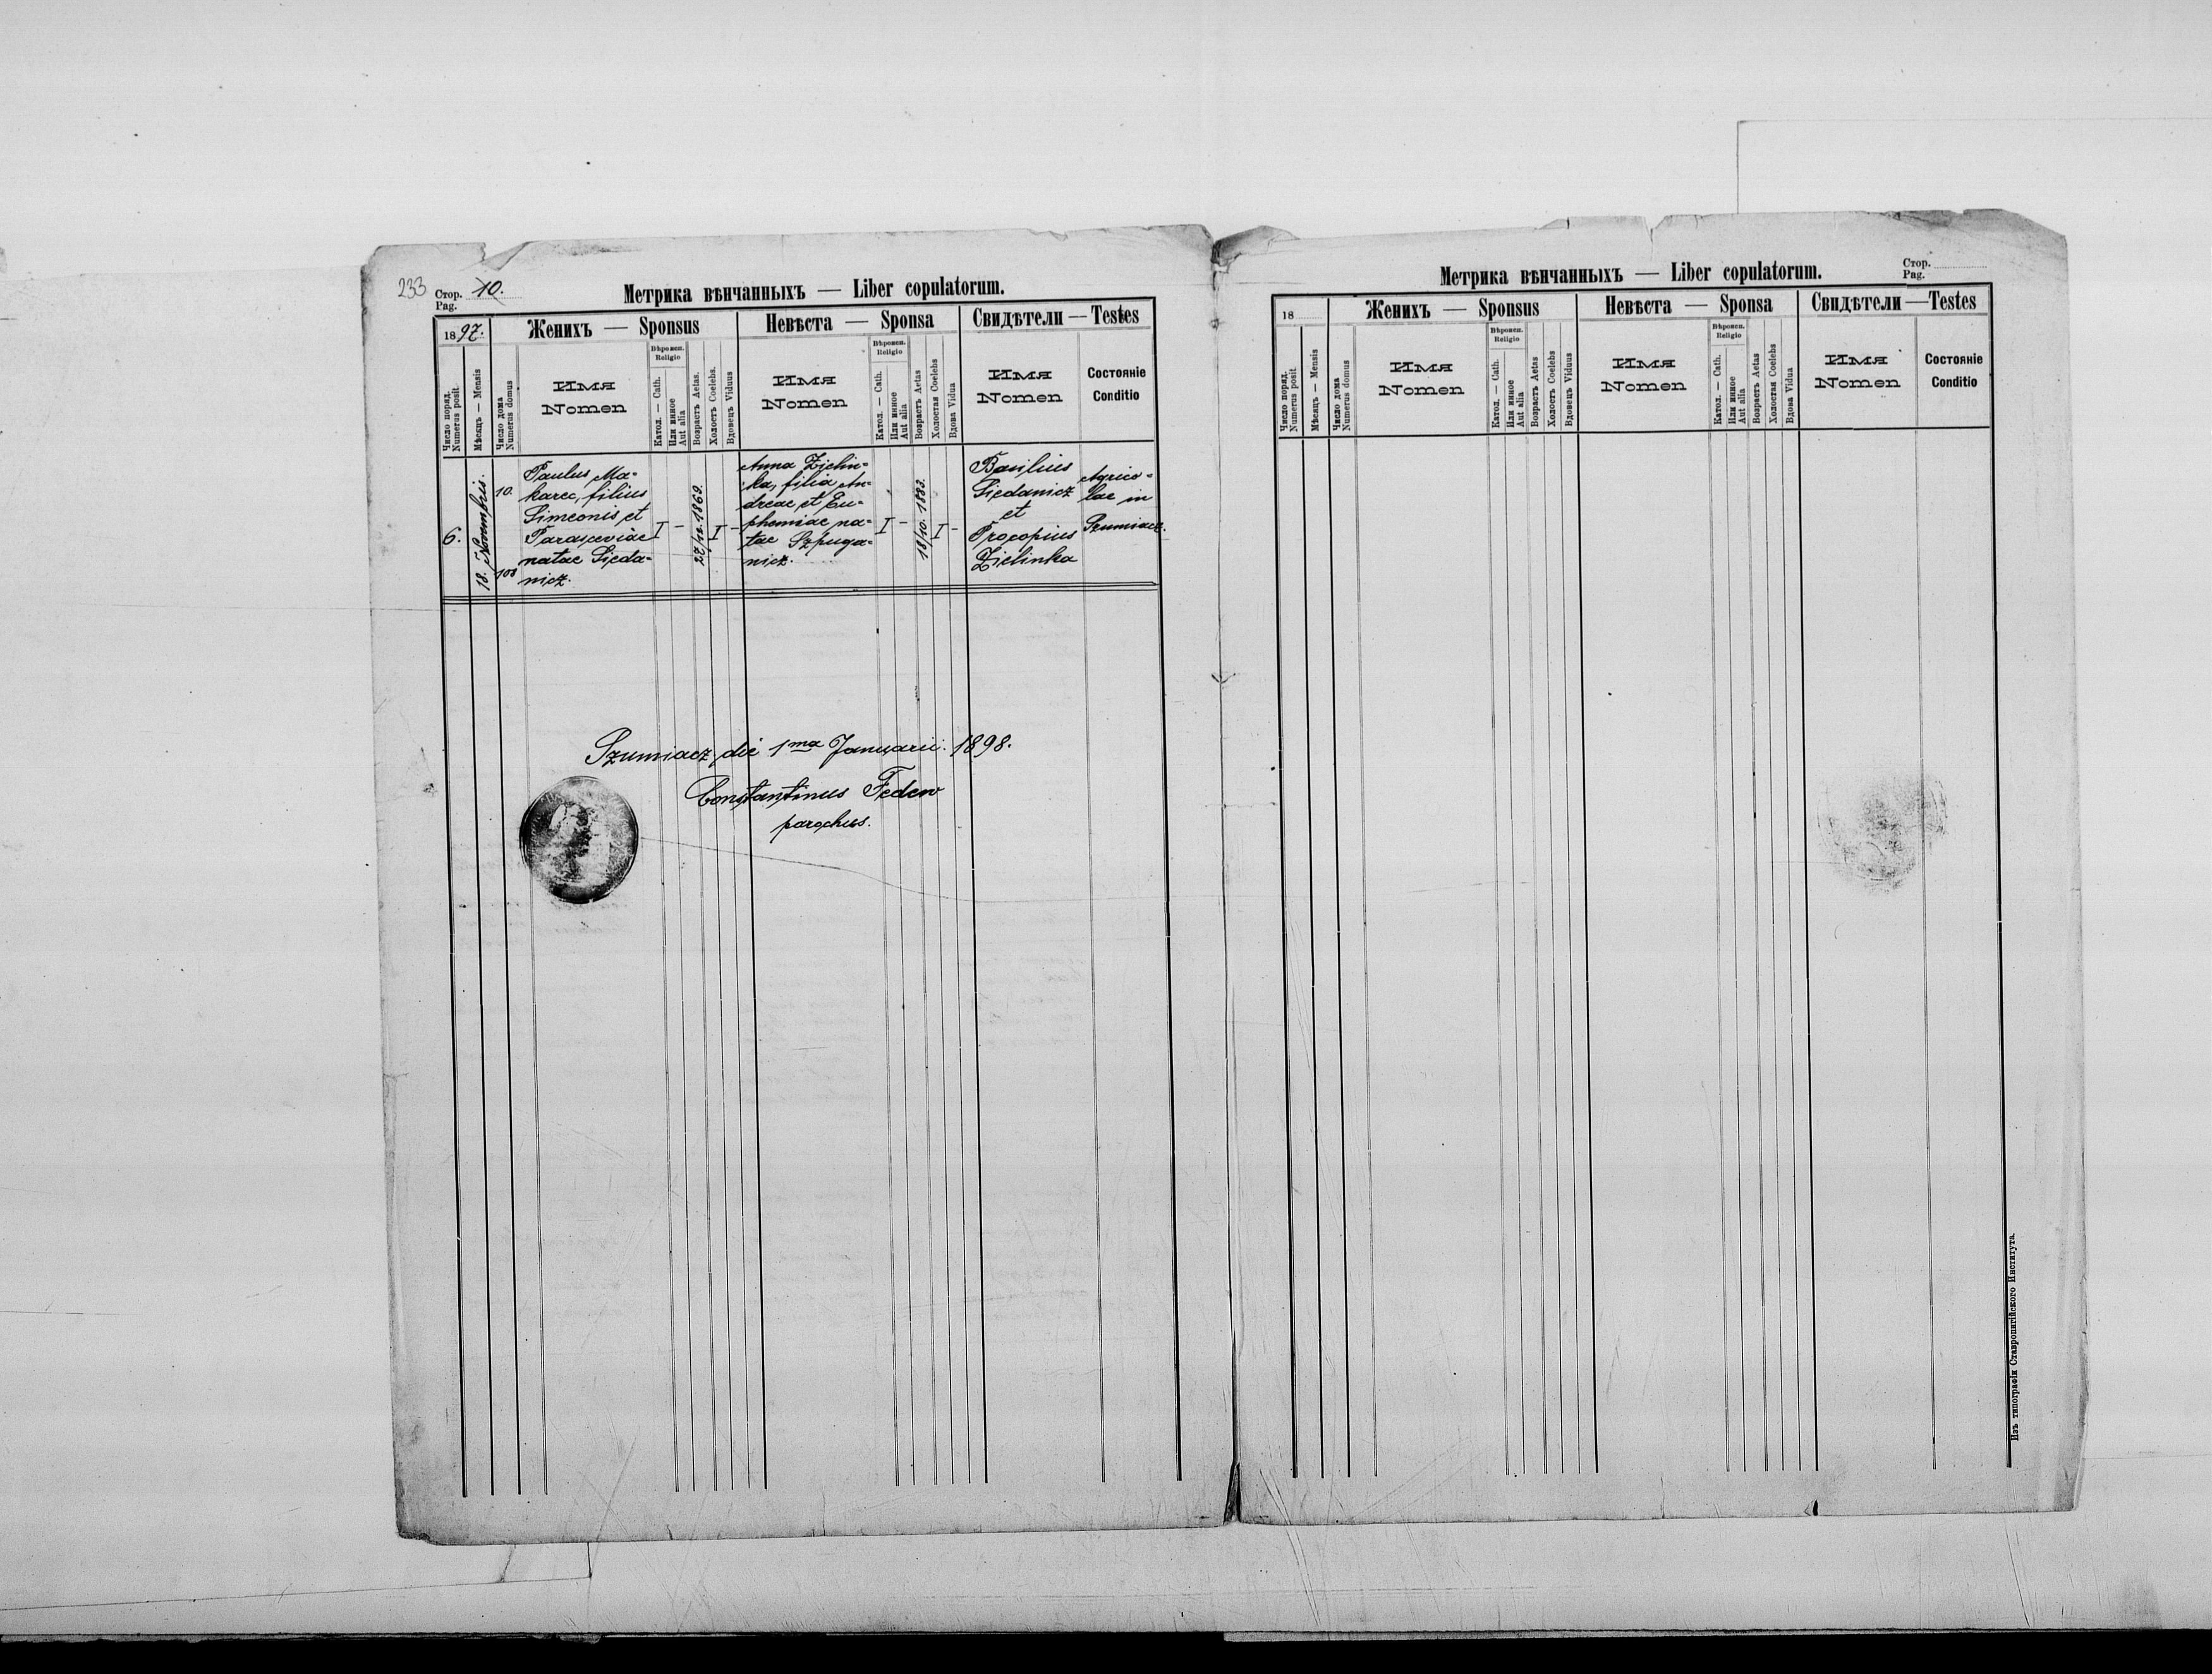 233
Стор. 10.
Pag.
Метрика вѣнчанныхъ — Liber copulatorum.
1897.
Женихъ — Sponsus
Невѣста — Sponsa
Свидѣтели — Testes
Число поряд.
Numerus posit.
Мѣсяцъ — Mensis
Число дома
Numerus domus
Имя
Nomen
Вѣроисп.
Religio
Катол. — Cath.
Или инное
Aut alia
Возрастъ Aetas.
Холостъ Coelebs.
Вдовецъ Viduus
Имя
Nomen
Вѣроисп.
Religio
Катол. — Cath.
Или инное
Aut alia
Возрастъ Aetas
Холостая Coelebs
Вдова Vidua
Имя
Nomen
Состояніе
Conditio
6.
18. Novembris.
10.
108
Paulus Ma-
karec, filius
Simeonis et
Parasceviae
natae Sieda-
nicz.
I
–
27/10. 1869.
I
–
Anna Zielin-
ka, filia An-
dreae et Eu-
phemiae na-
tae Szpuga-
nicz.
I
–
18/10. 1883.
I
–
Basilius
Siedanicz
et
Procopius
Zielinka
Agrico-
lae in
Szumiacz.
Szumiacz, die 1ma Januarii. 1898.
Constantinus Fedew
parochus.
Метрика вѣнчанныхъ — Liber copulatorum.
Стор.
Pag.
18
Женихъ — Sponsus
Невѣста — Sponsa
Свидѣтели — Testes
Число поряд.
Numerus posit.
Мѣсяцъ — Mensis
Число дома
Numerus domus
Имя
Nomen
Вѣроисп.
Religio
Катол. — Cath.
Или инное
Aut alia
Возрастъ Aetas
Холостъ Coelebs
Вдовецъ Vidus
Имя
Nomen
Вѣроисп.
Religio
Катол. — Cath.
Или инное
Aut alia
Возрастъ Aetas
Холостая Coelebs
Вдова Vidua
Имя
Nomen
Состояніе
Conditio
Изъ типографіи Ставропигійского Института.